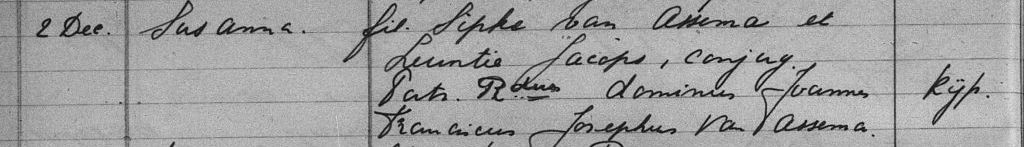 2 Dec. Susanna. fil. Sipke van Assema et
Leuntie Jacops, conjug.
Patr. Rdus dominus Joannes Kÿp.
Franciscus Josephus Van Assema.